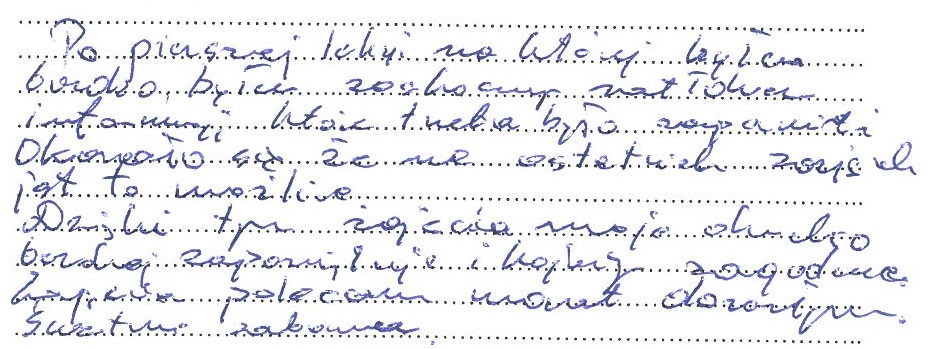 Po pierszej lekcji na której byłem
bardzo byłem zaskoczony natłokiem
informacji które trzeba było zapamiętać
Okazało się że na ostatnich zajęciach
jest to możliwe
Dzięki tym zajęcia moje dziecko
bardziej zapamiętuje i kojarzy zagadnienia
polecam nawet dorosłym.
Świetna zabawa